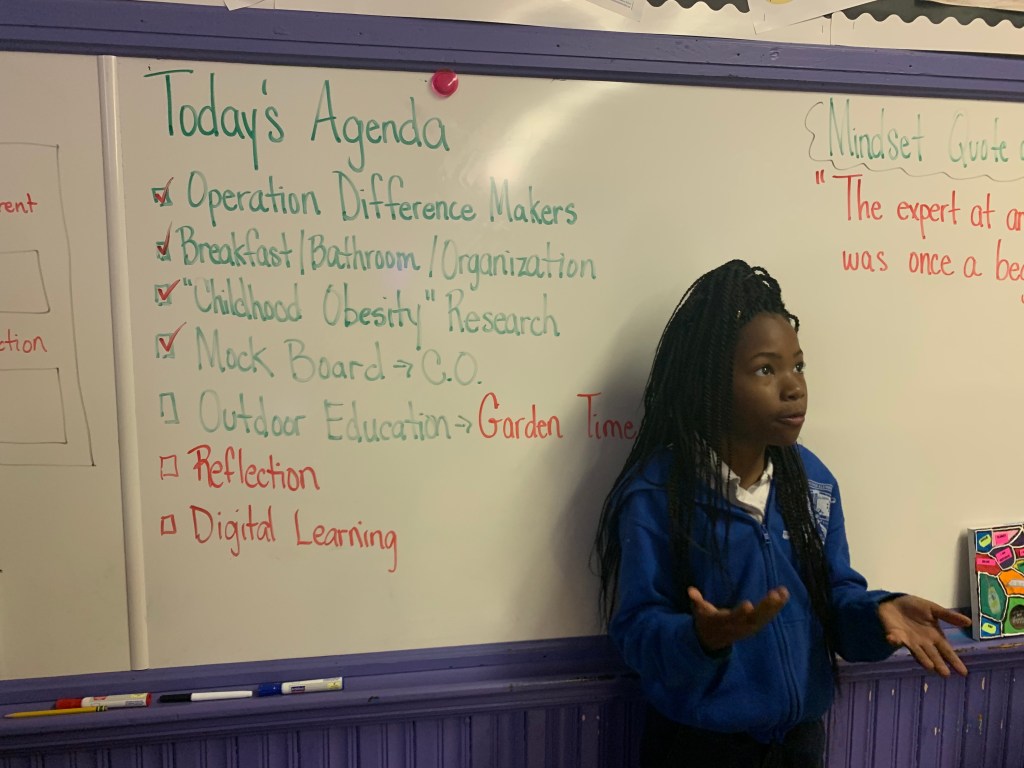 Today's Agenda
Operation Difference Makers
Breakfast/Bathroom/Organization
"Childhood Obesity" Research
Mock Board → C.O.
Outdoor Education → Garden Time
Reflection
Digital Learning
Mindset Quote
"The expert at
was once a